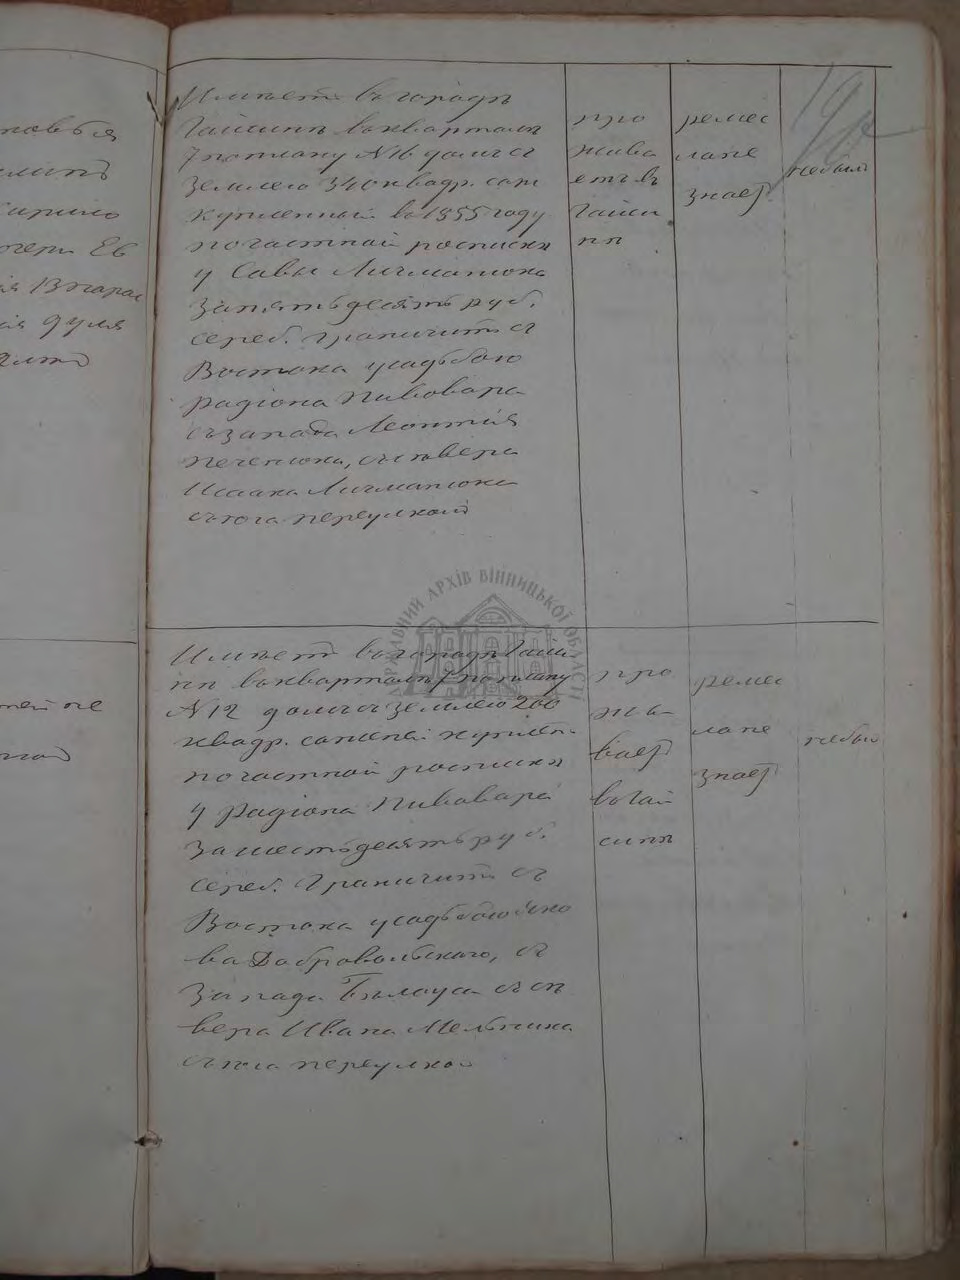 новья
Имѣетъ въ городѣ
Гайсинѣ въ кварталѣ
7 по плану №16 домъ съ
землею 340 квадр. саж
купленный въ 1855 году
по частной росписки
у Савы Личманюка
за пятьдесятъ руб.
сереб. Граничитъ съ
Востока усадьбою
радіона Пивовара
съ запада Леонтія
Печенюка, съ севера
Исаака Личманюка
съ юга переулкомъ
про
жива
етъ въ
Гайси
нѣ
ремес
ла не
знаетъ
не былъ
Имѣетъ въ городѣ Гайси
нѣ въ кварталѣ 7 по плану
№12 домъ съ землею 200
квадр. саженей куплен.
по частной росписки
у радіона Пивовара
за шестьдесятъ руб.
сереб. Граничитъ съ
Востока усадьбою Яко
ва Добровольскаго, съ
Запада Бѣлоуса съ сѣ
вера Ивана Мельника
съ юга переулко
про
жи
ваетъ
въ Гай
синѣ
ремес
ла не
знаетъ
не былъ
ДЕРЖАВНИЙ АРХІВ ВІННИЦЬКОЇ ОБЛАСТІ